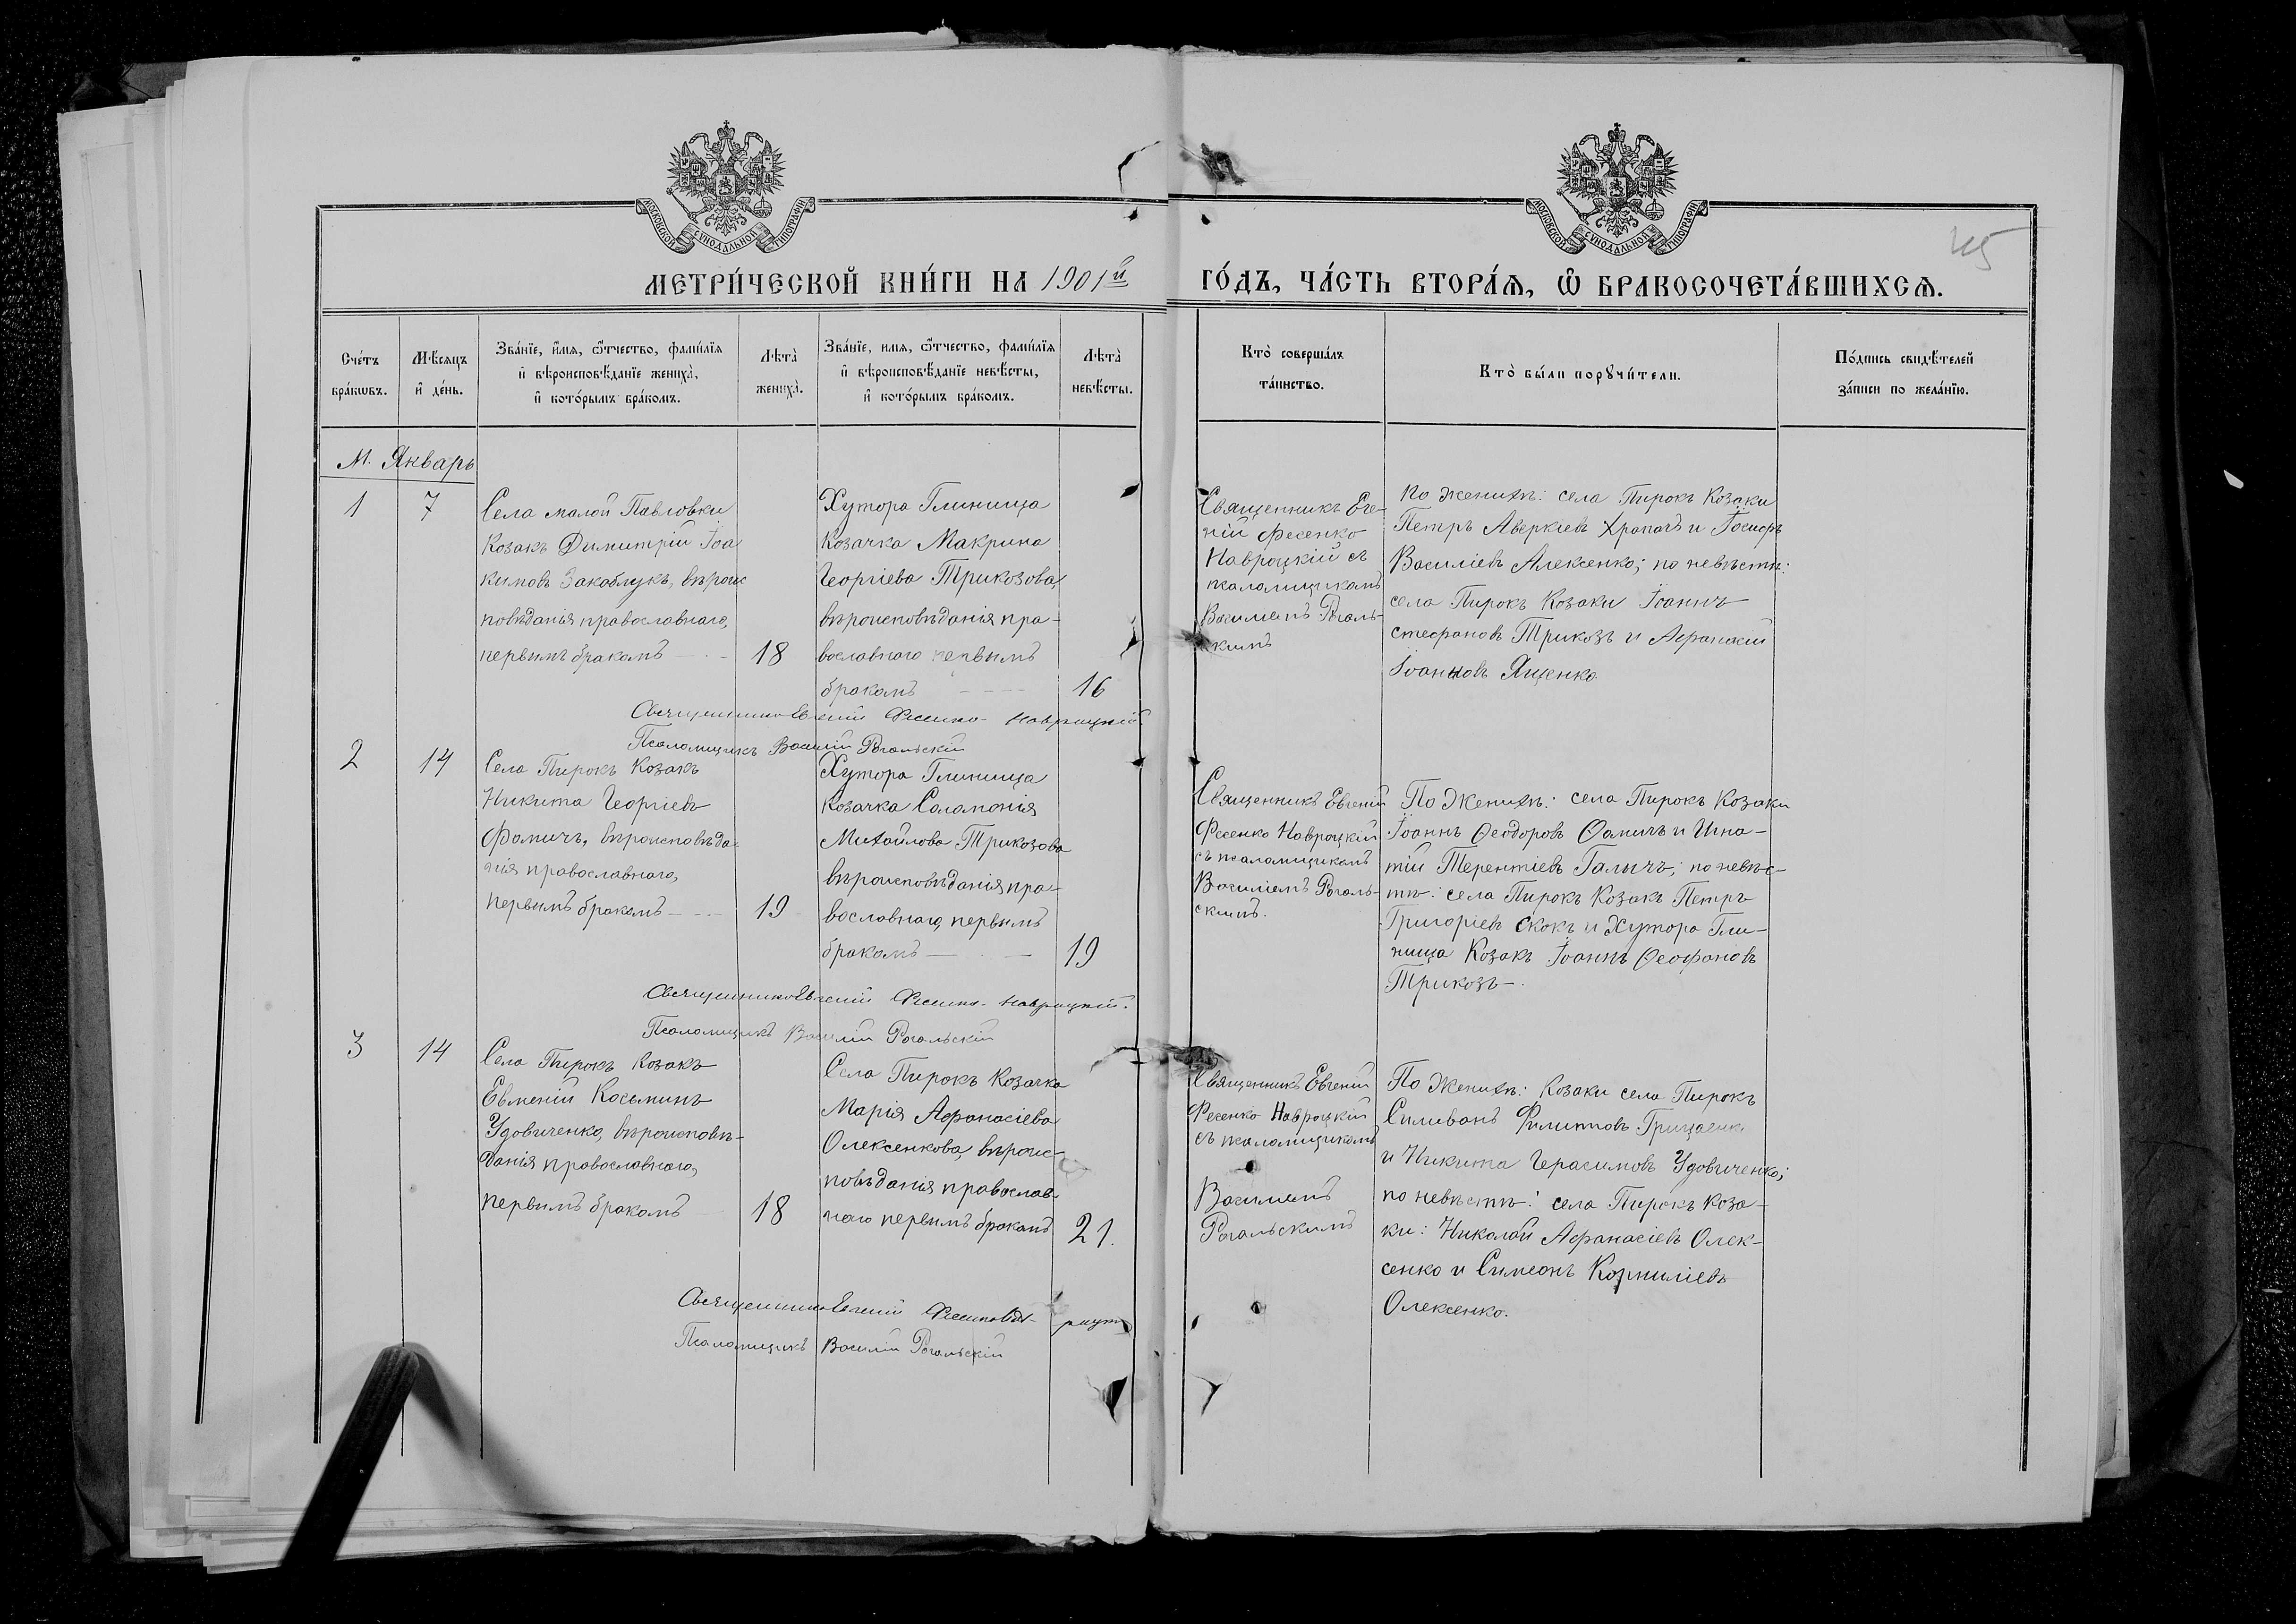 МОСКОВСКОЙ СѴНОДАЛЬНОЙ ТИПОГРАФІИ
МОСКОВСКОЙ СѴНОДАЛЬНОЙ ТИПОГРАФІИ
МЕТРИ́ЧЕСКОЙ КНИ́ГИ НА 1901й ГО́ДЪ, ЧА́СТЬ ВТОРА́Я, Ѡ҆ БРАКОСОЧЕТА́ВШИХСЯ.
Сче́тъ
бра́кѡвъ.
Мѣ́сяцъ
и҆ де́нь.
Зва́нїе, и҆́мя, ѻ҆́тчество, фами́лїя
и҆ вѣроисповѣ́данїе жениха̀,
и҆ кото́рымъ бра́комъ.
Лѣта̀
жениха̀.
Зва́нїе, имя, ѻ҆́тчество, фами́лїя
и҆ вѣроисповѣ́данїе невѣ́сты,
и҆ кото́рымъ бра́комъ.
Лѣта̀
невѣ́сты.
Кто̀ соверша́лъ
та́инство.
Кто̀ бы́ли порꙋчи́тели.
По́дпись свидѣ́телей
за́писи по жела́нїю.
М. Январь
1
7
Села малой Павловки
Козакъ Димитрій Іоа
кимовъ Закаблукъ, вѣроис
повѣданія православнаго,
первымъ бракомъ
18
Хутора Глинища
Козачка Макрина
Георгіева Трикозова,
вѣроисповѣданія пра-
вославнаго первымъ
бракомъ
16
Священникъ Евге-
ній Фесенко
Навроцкій съ
псаломщикомъ
Василіемъ Рогаль-
скимъ
По женихѣ: села Пирокъ Козаки
Петръ Аверкіевъ Храпачъ и Іосифъ
Василіевъ Алексенко; по невѣстѣ:
села Пирокъ Козаки Іоаннъ
Стефановъ Трикозъ и Афанасій
Іоанновъ Ященко
Священникъ Евгеній Фесенко-Навроцкій.
Псаломщикъ Василій Рогальскій
2
14
Села Пирокъ Козакъ
Никита Георгіевъ
Фомичъ, вѣроисповѣда-
нія православнаго,
первымъ бракомъ
19
Хутора Глинища
Козачка Соломонія
Михайлова Трикозова
вѣроисповѣданія пра-
вославнаго, первымъ
бракомъ
19
Священникъ Евгеній
Фесенко Навроцкій
съ псаломщикомъ
Василіемъ Рогаль-
скимъ.
По Женихѣ: села Пирокъ Козаки
Іоаннъ Ѳеодоровъ Ѳомичъ и Игна-
тій Терентіевъ Галичъ; по невѣс-
тѣ: села Пирокъ Козакъ Петръ
Григоріевъ Скокъ и Хутора Гли-
нища Козакъ Іоаннъ Ѳеофановъ
Трикозъ.
Священникъ Евгеній Фесенко-Навроцкій.
Псаломщикъ Василій Рогальскій
3
14
Села Пирокъ Козакъ
Евменій Косьминъ
Удовиченко, вѣроисповѣ-
данія православнаго,
первымъ бракомъ
18
Села Пирокъ Козачка
Марія Афанасіева
Олексенкова, вѣроис-
повѣданія православ-
наго первымъ бракомъ
21.
Священникъ Евгеній
Фесенко Навроцкій
съ псаломщикомъ
Василіемъ
Рогальскимъ
По Женихѣ: Козаки села Пирокъ
Силиванъ Филиповъ Грищенк
и Никита Герасимовъ Удовиченко;
по невѣстѣ: села Пирокъ Коза-
ки: Николай Афанасіевъ Олек-
сенко и Симеонъ Корниліевъ
Олексенко.
Священникъ Евгеній
Псаломщикъ Василій Рогальскій